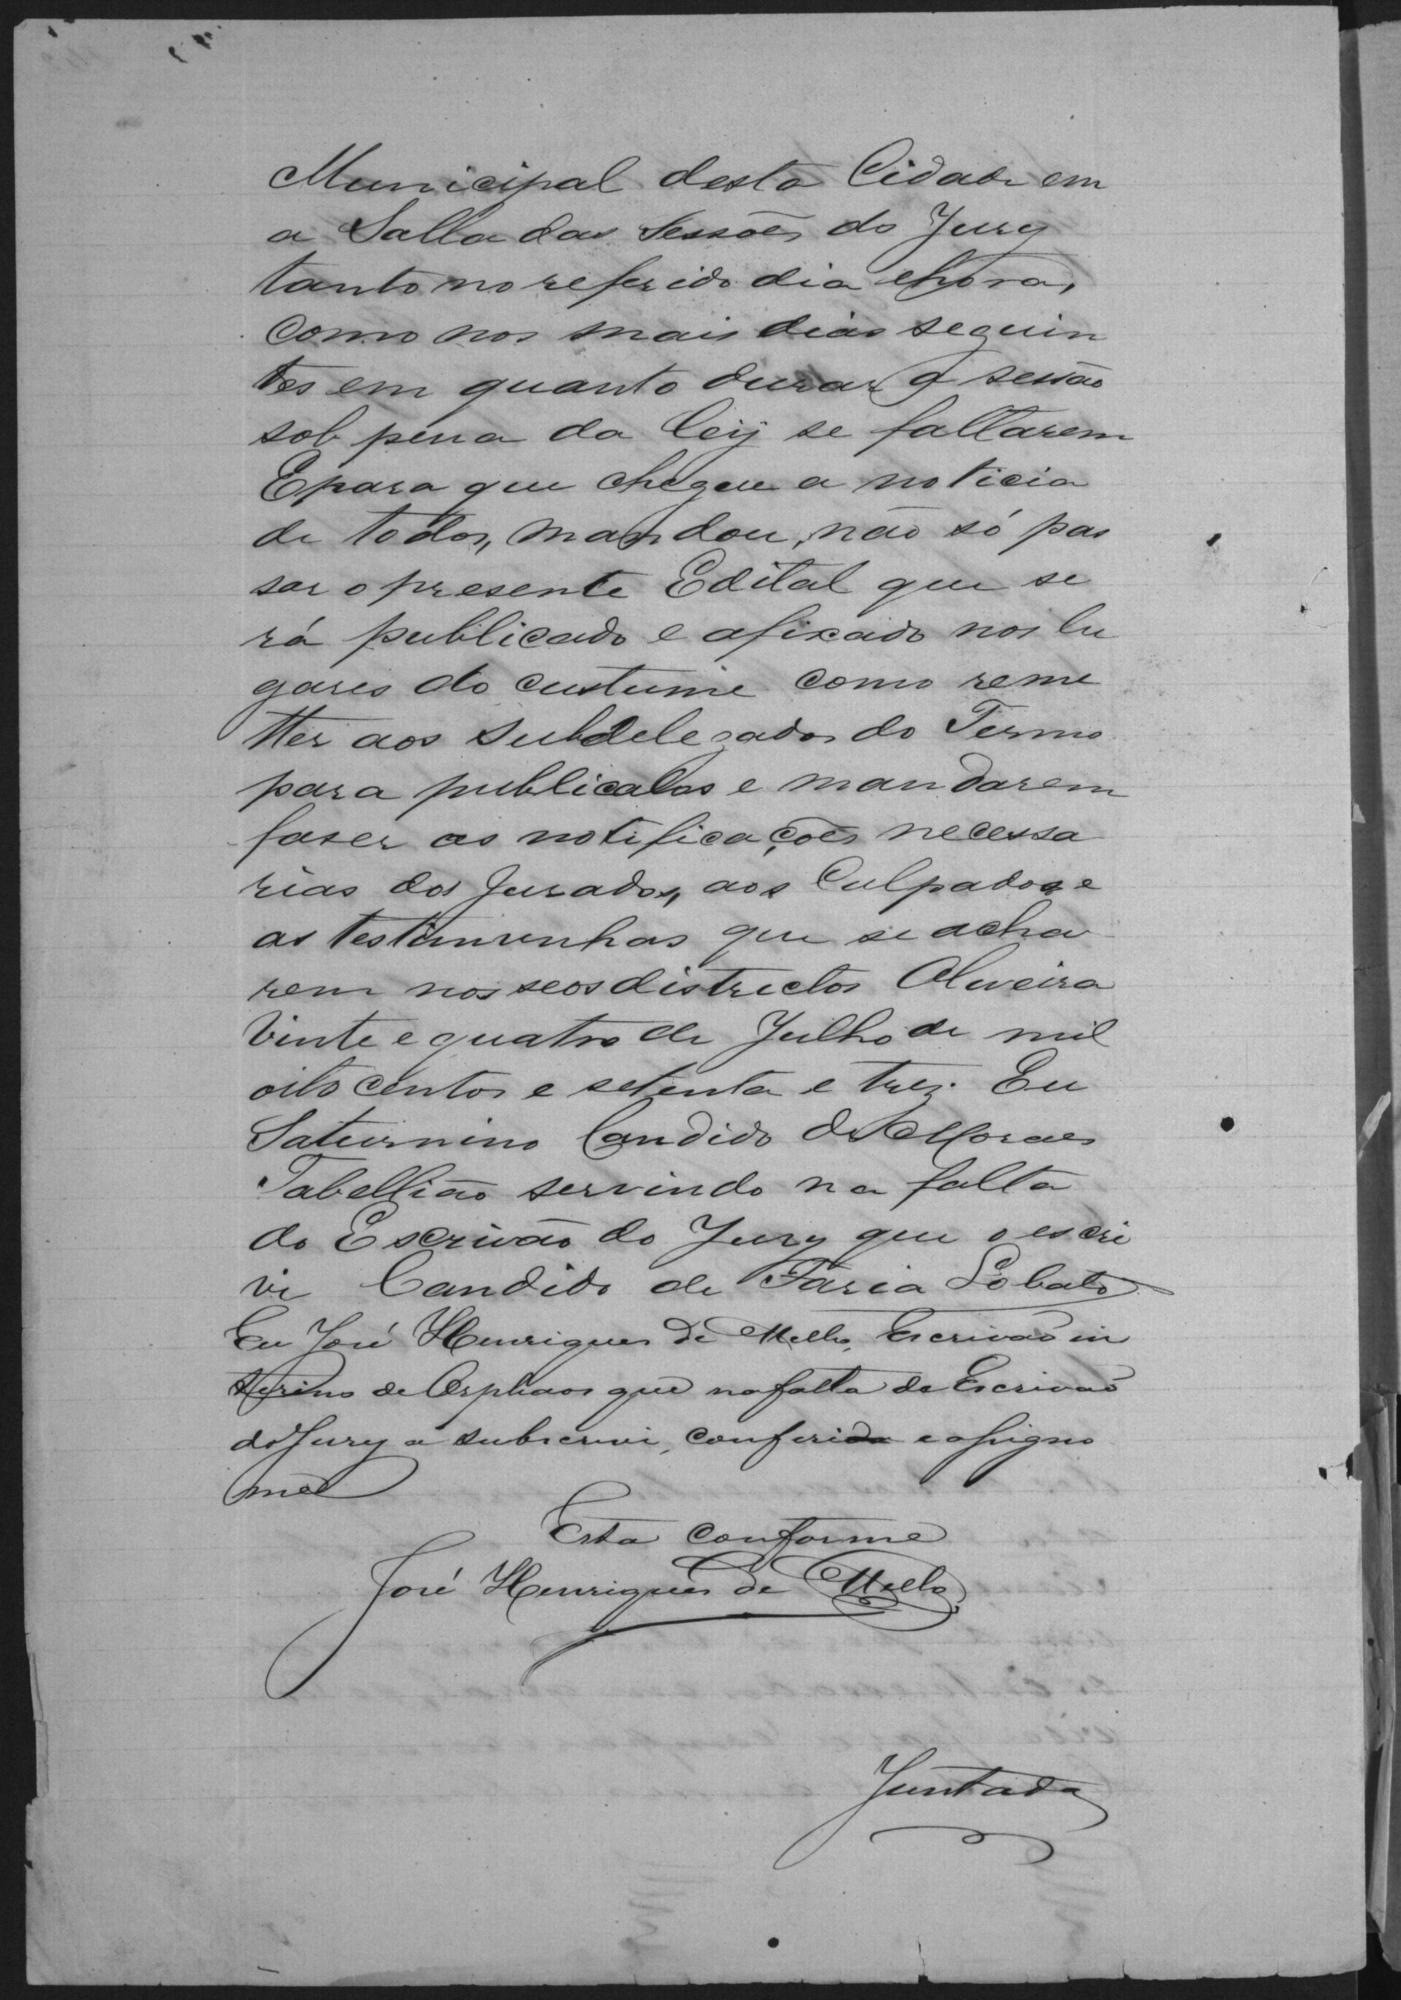 Municipal desta Cidade em
a Salla das Sessões do Jury
tanto no referido dia e hora,
como nos mais dias seguin
tes em quanto durar a sessão
sob pena da Leij se faltarem
E para que chegue a noticia
de todos, mandou, não só pas
sar o presente Edital que se
rá publicado e afixado nos lu
gares do custume como reme
tter aos Subdelegados do Termo
para publicalos e mandarem
faser as notificações necessa
rias dos Jurados, aos Culpados e
as testimunhas que se acha
rem nos seos districtos Oliveira
Vinte e quatro de Julho de mil
oito centos e setenta e trez. Eu
Saturnino Candido de Moraes
Tabellião servindo na falta
do Escrivão do Jury que o escri
vi Candido de Faria Lobato
Eu José Henriques de Mello, Escrivão in
terino de Orphaos que na falta do Escrivão
do Jury a subscrevi, conferida e assigno
me
Esta conforme
José Henriques de Mello,
Juntada